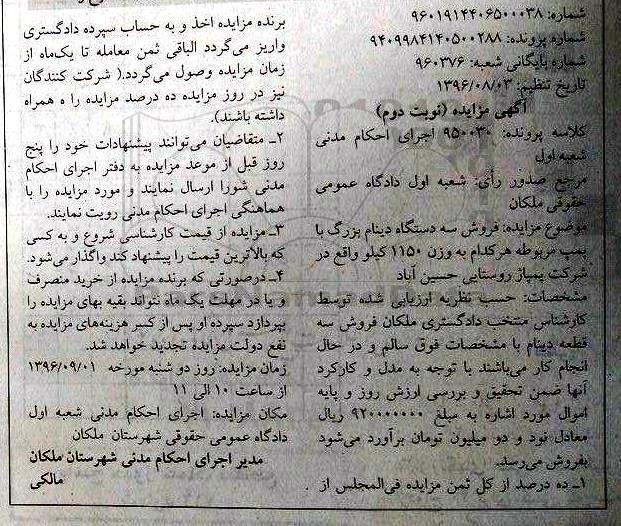 شماره: ۹۶۰۱۹۱۴۴۰۶۵۰۰۰۳۸
شماره پرونده: ۹۴۰۹۹۸۴۱۴۰۵۰۰۲۸۸
شماره بایگانی شعبه: ۹۶۰۳۷۶
تاریخ تنظیم: ۱۳۹۶/۰۸/۰۳
آگهی مزایده (نوبت دوم)
کلاسه پرونده: ۹۵۰۰۳۰ اجرای احکام مدنی
شعبه اول
مرجع صدور رأی: شعبه اول دادگاه عمومی
حقوقی ملکان
موضوع مزایده: فروش سه دستگاه دینام بزرگ با
پمپ مربوطه هرکدام به وزن ۱۱۵۰ کیلو واقع در
شرکت پمپاژ روستایی حسین آباد
مشخصات: حسب نظریه ارزیابی شده توسط
کارشناس منتخب دادگستری ملکان فروش سه
قطعه دینام با مشخصات فوق سالم و در حال
انجام کار می‌باشند با توجه به مدل و کارکرد
آنها ضمن تحقیق و بررسی ارزش روز و پایه
اموال مورد اشاره به مبلغ ۹۲۰۰۰۰۰۰۰ ریال
معادل نود و دو میلیون تومان برآورد می‌شود
بفروش می‌رسد.
۱ـ ده درصد از کل ثمن مزایده فی‌المجلس از
برنده مزایده اخذ و به حساب سپرده دادگستری
واریز می‌گردد الباقی ثمن معامله تا یک‌ماه از
زمان مزایده وصول می‌گردد.( شرکت کنندگان
نیز در روز مزایده ده درصد مزایده را ه همراه
داشته باشند).
۲ـ متقاضیان می‌توانند پیشنهادات خود را پنج
روز قبل از موعد مزایده به دفتر اجرای احکام
مدنی شورا ارسال نمایند و مورد مزایده را با
هماهنگی اجرای احکام مدنی رویت نمایند.
۳ـ مزایده از قیمت کارشناسی شروع و به کسی
که بالاترین قیمت را پیشنهاد کند واگذار می‌شود.
۴ـ درصورتی که برنده مزایده از خرید منصرف
و یا در مهلت یک ماه نتواند بقیه بهای مزایده را
بپردازد سپرده او پس از کسر هزینه‌های مزایده به
نفع دولت مزایده تجدید خواهد شد.
زمان مزایده: روز دو شنبه مورخه ۱۳۹۶/۰۹/۰۱
از ساعت ۱۰ الی ۱۱
مکان مزایده: اجرای احکام مدنی شعبه اول
دادگاه عمومی حقوقی شهرستان ملکان
مدیر اجرای احکام مدنی شهرستان ملکان
مالکی